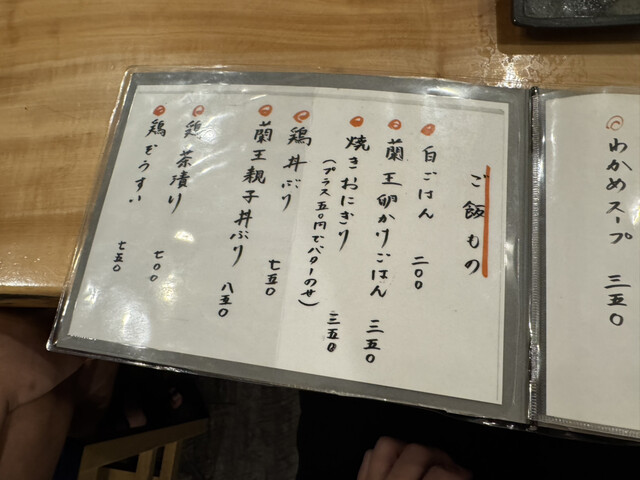 わかめスープ 三五〇
ご飯もの
白ごはん 二〇〇
蘭王卵かけごはん 三五〇
焼きおにぎり 三五〇
(プラス五〇円でバターのせ)
鶏丼ぶり 七五〇
蘭王親子丼ぶり 八五〇
鶏茶漬り 七〇〇
鶏ぞうすい 七五〇